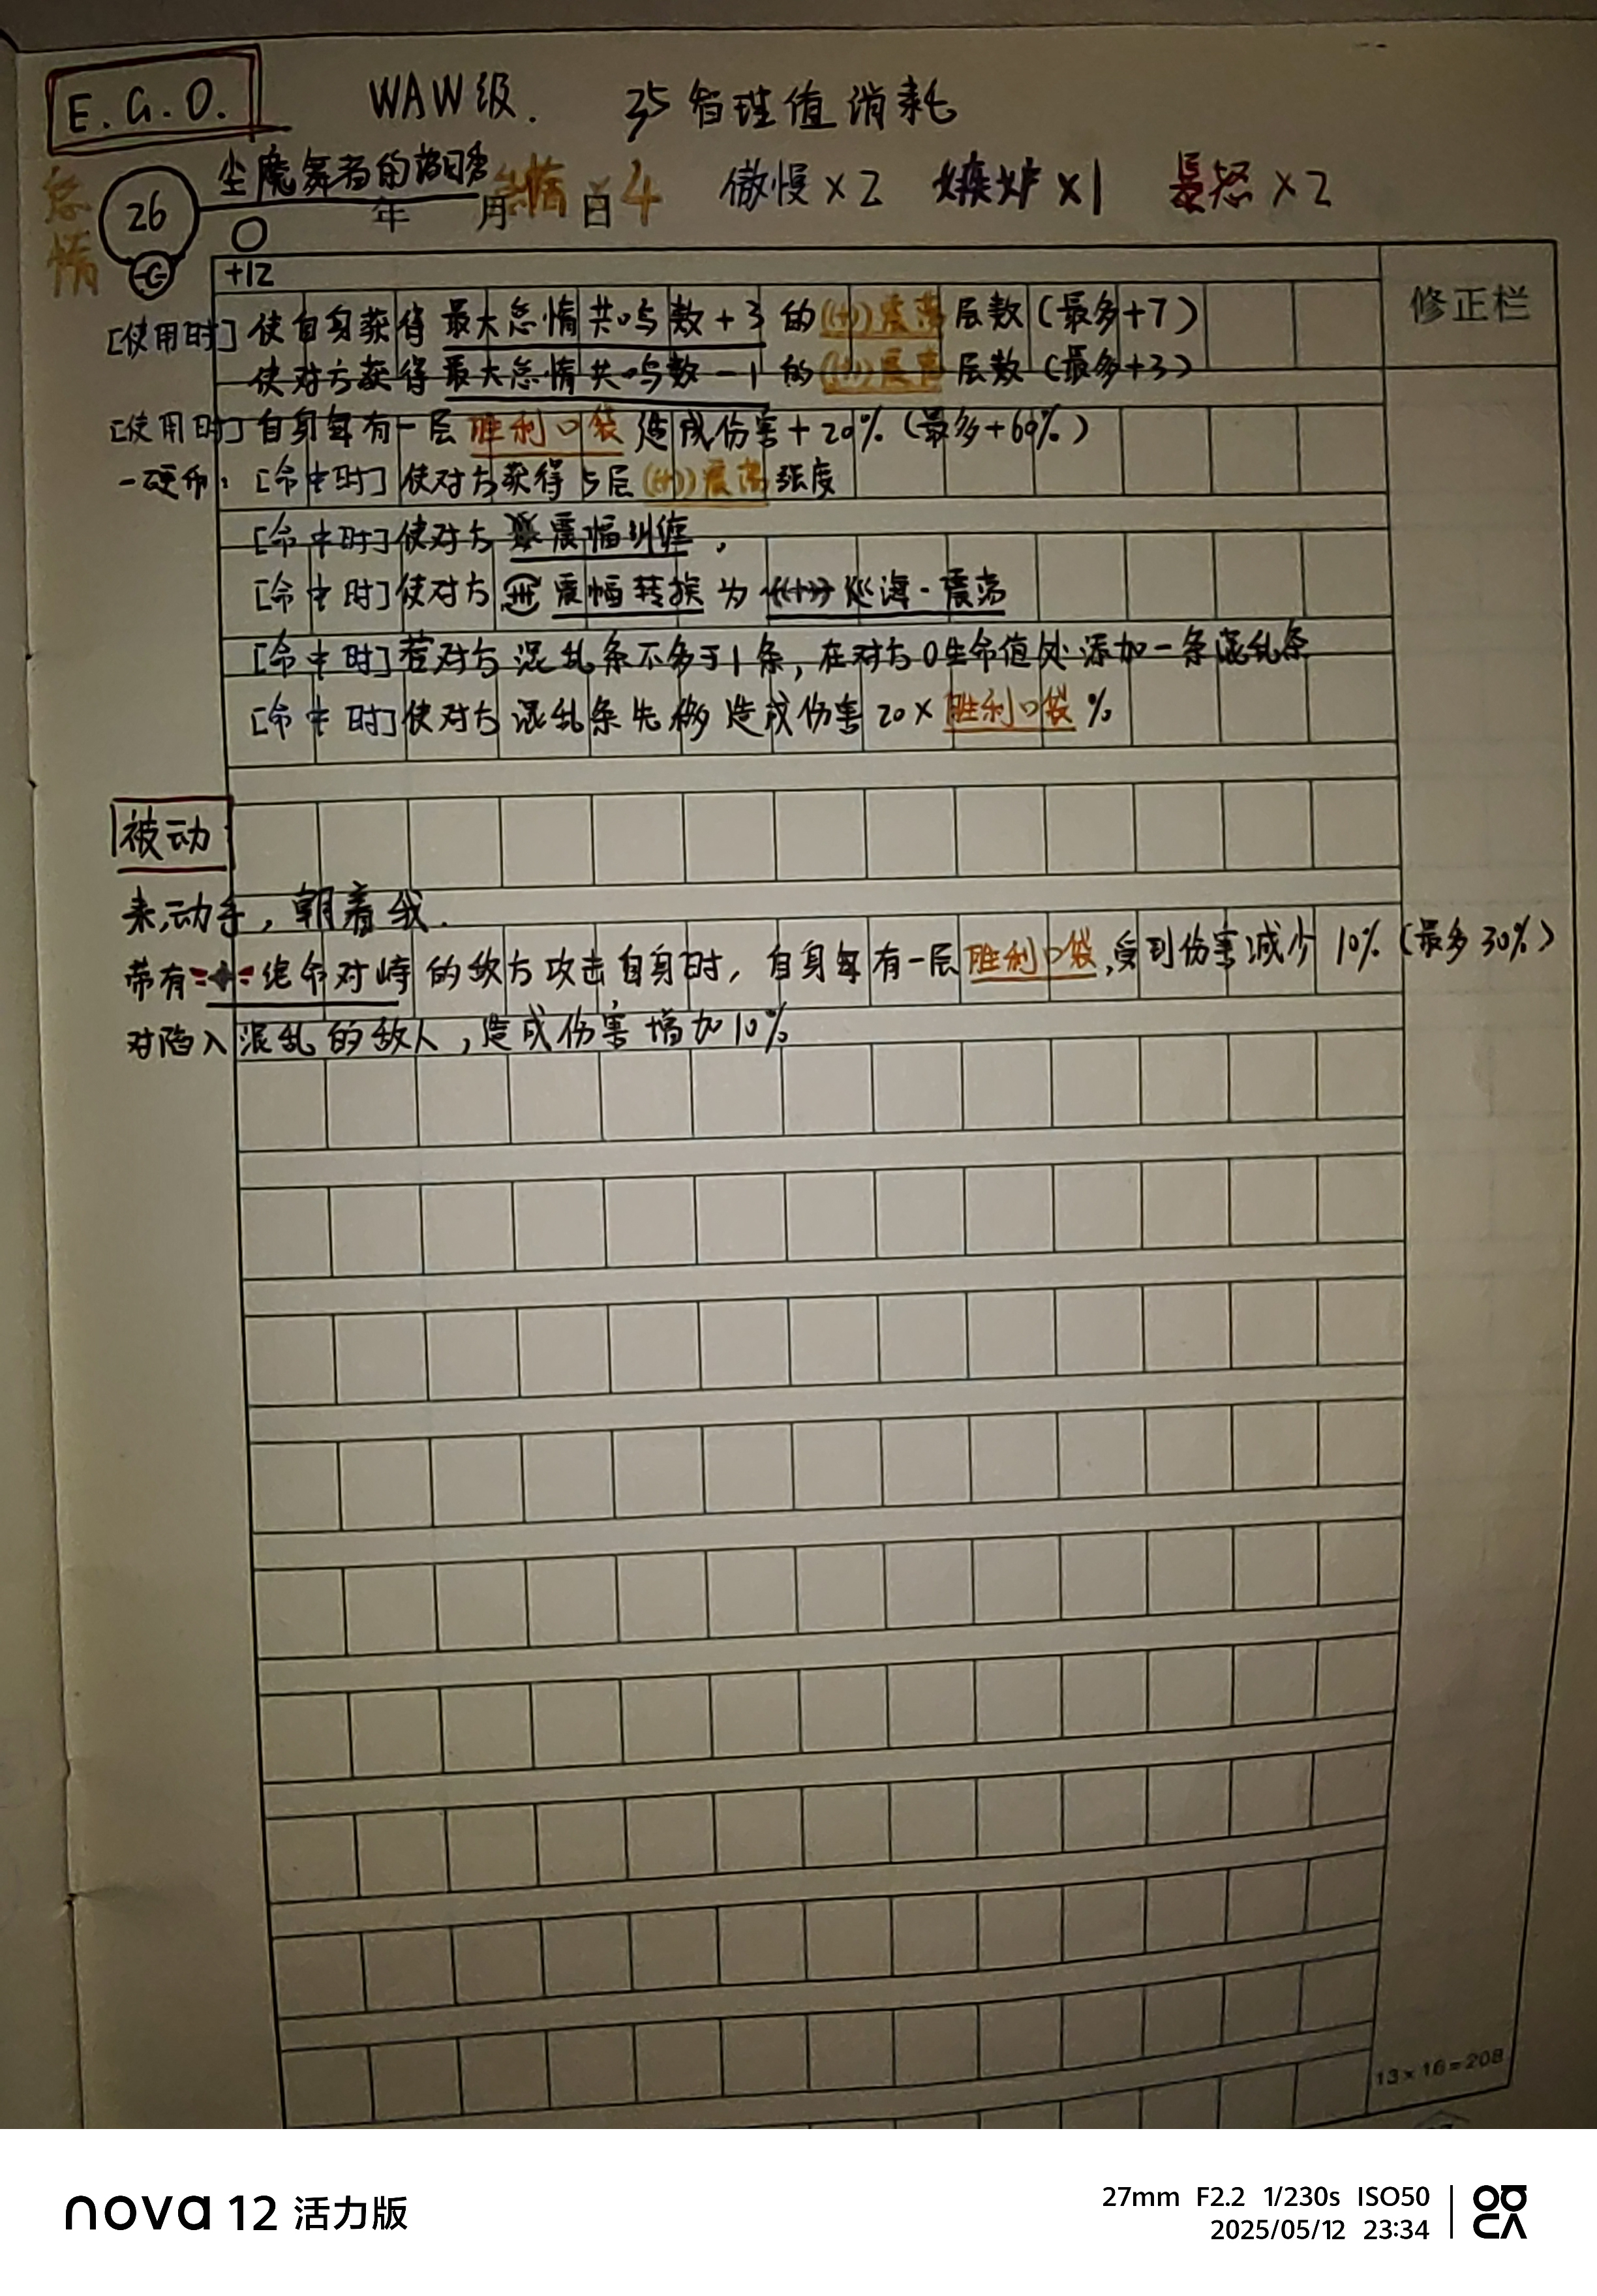 E.G.O. WAW级. 35 理值消耗
怠惰 26 尘魔舞者的 怠惰×4 傲慢×2 嫉妒×1 暴怒×2
年 月 日
+12
修正栏
[使用时] 使自身获得最大怠惰共鸣数+3的震荡层数(最多+7)
使对方获得最大怠惰共鸣数-1的震荡层数(最多+3)
[使用时] 自身每有一层胜利口袋造成伤害+20%(最多+60%)
一硬币: [命中时] 使对方获得5层震荡强度
[命中时] 使对方震幅纠缠.
[命中时] 使对方震幅转换为 巡海·震荡
[命中时] 若对方混乱条不多于1条,在对方0生命值处添加一条混乱条
[命中时] 使对方混乱条先移造成伤害20×胜利口袋%
被动
来,动手,朝着我.
带有绝命对峙的敌方攻击自身时,自身每有一层胜利口袋,受到伤害减少10%(最多30%)
对陷入混乱的敌人,造成伤害增加10%
13×16=208
nova 12 活力版
27mm F2.2 1/230s ISO50
2025/05/12 23:34